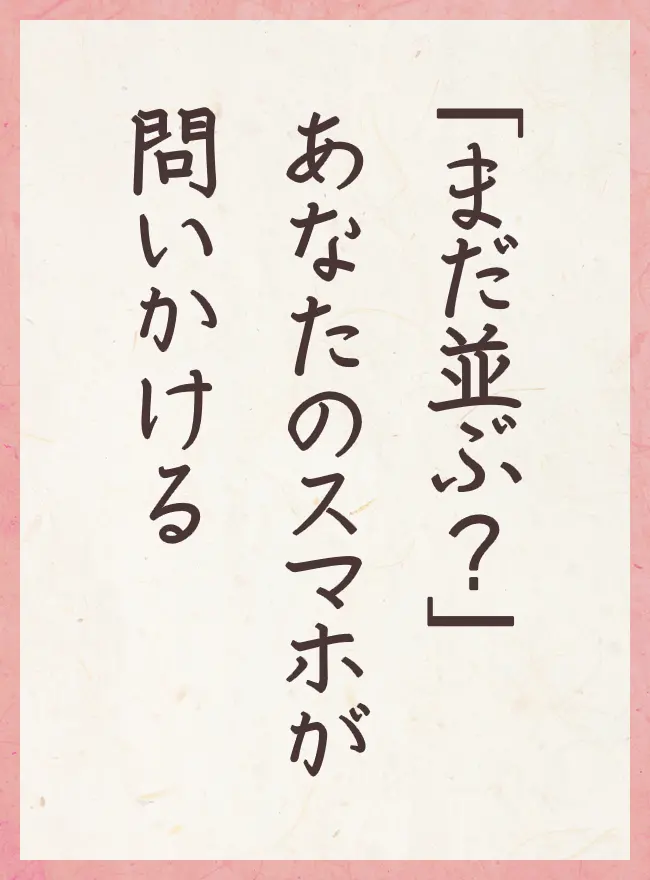 「まだ並ぶ？」
あなたのスマホが
問いかける